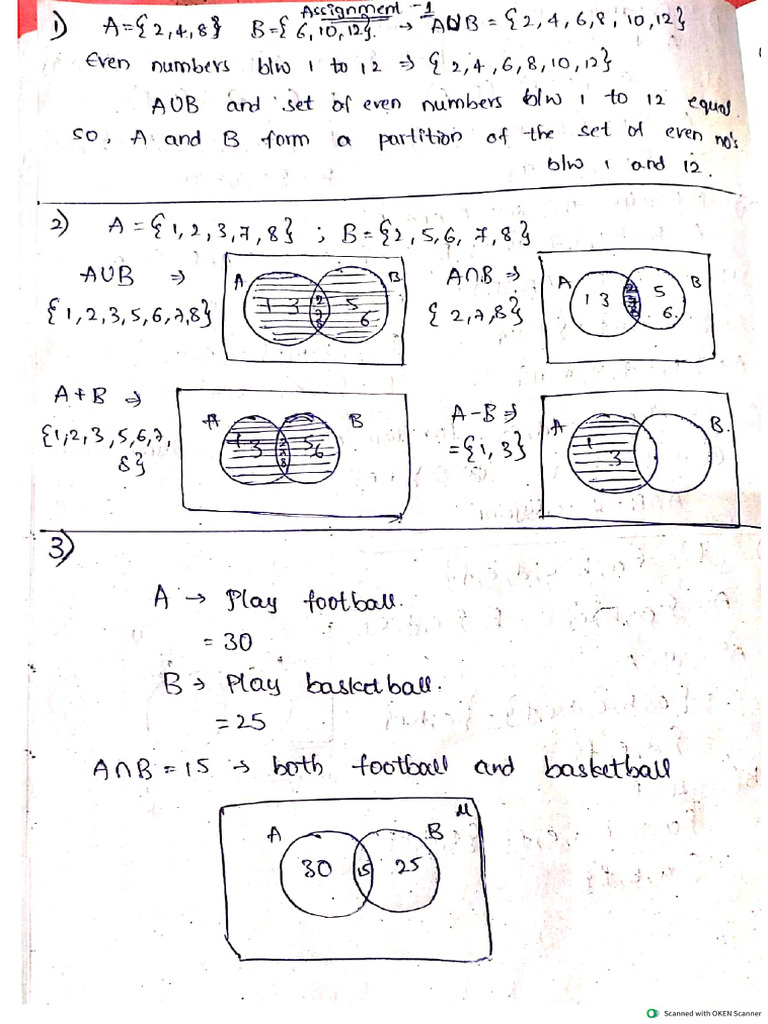 Assignment -1
1) A={2,4,8} B={6,10,12}. → A∪B = {2,4,6,8,10,12}
Even numbers b/w 1 to 12 ⇒ {2,4,6,8,10,12}
A∪B and set of even numbers b/w 1 to 12 equal
so, A and B form a partition of the set of even no's
b/w 1 and 12.
2) A={1,2,3,7,8} ; B={2,5,6,7,8}
A∪B ⇒
{1,2,3,5,6,7,8}
A B
1 3 2 7 8 5 6
A∩B ⇒
{2,7,8}
A B
1 3 2 7 8 5 6.
A+B ⇒
{1,2,3,5,6,7,
8}
A B
1 3 2 7 8 5 6
A-B ⇒
={1,3}
A B.
1 3
3)
A → Play football.
= 30
B → Play basketball.
= 25
A∩B = 15 → both football and basketball
μ
A B
30 15 25
Scanned with OKEN Scanner